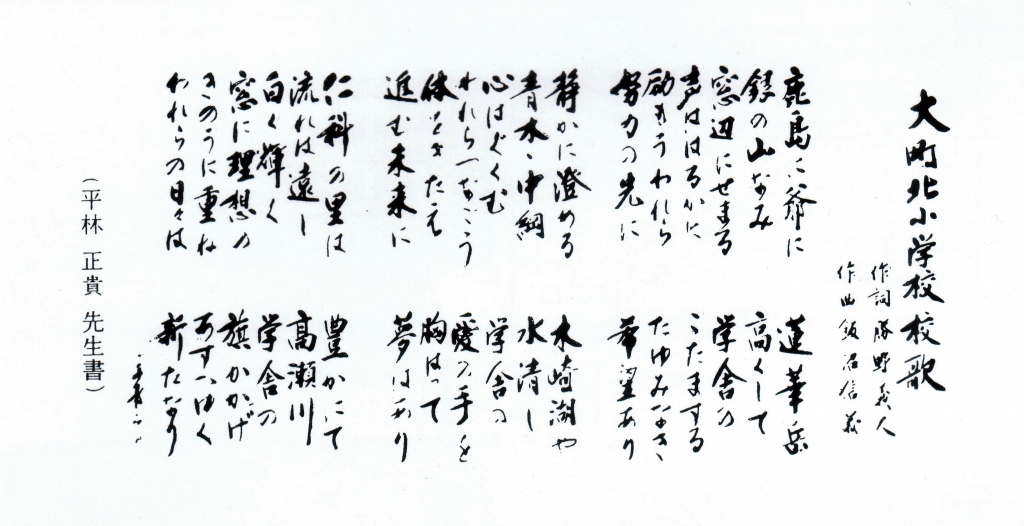 大町北小学校校歌
作詞 勝野義人
作曲 飯沼信義
鹿島に爺に 蓮華岳
銀の山なみ 高くして
窓辺にせまる 学舎の
声ははるかに こだまする
励もうわれら たゆみなき
努力の先に 希望あり
静かに澄める 木崎湖や
青木、中綱 水清し
心はぐくむ 学舎の
われらつなごう 愛の手を
体をきたえ 胸はって
進む未来に 夢はあり
仁科の里は 豊かにて
流れは遠し 高瀬川
白く輝く 学舎の
窓に理想の 旗かかげ
きのうに重ね あすへゆく
われらの日々は 新たなり
(平林 正貴 先生書)